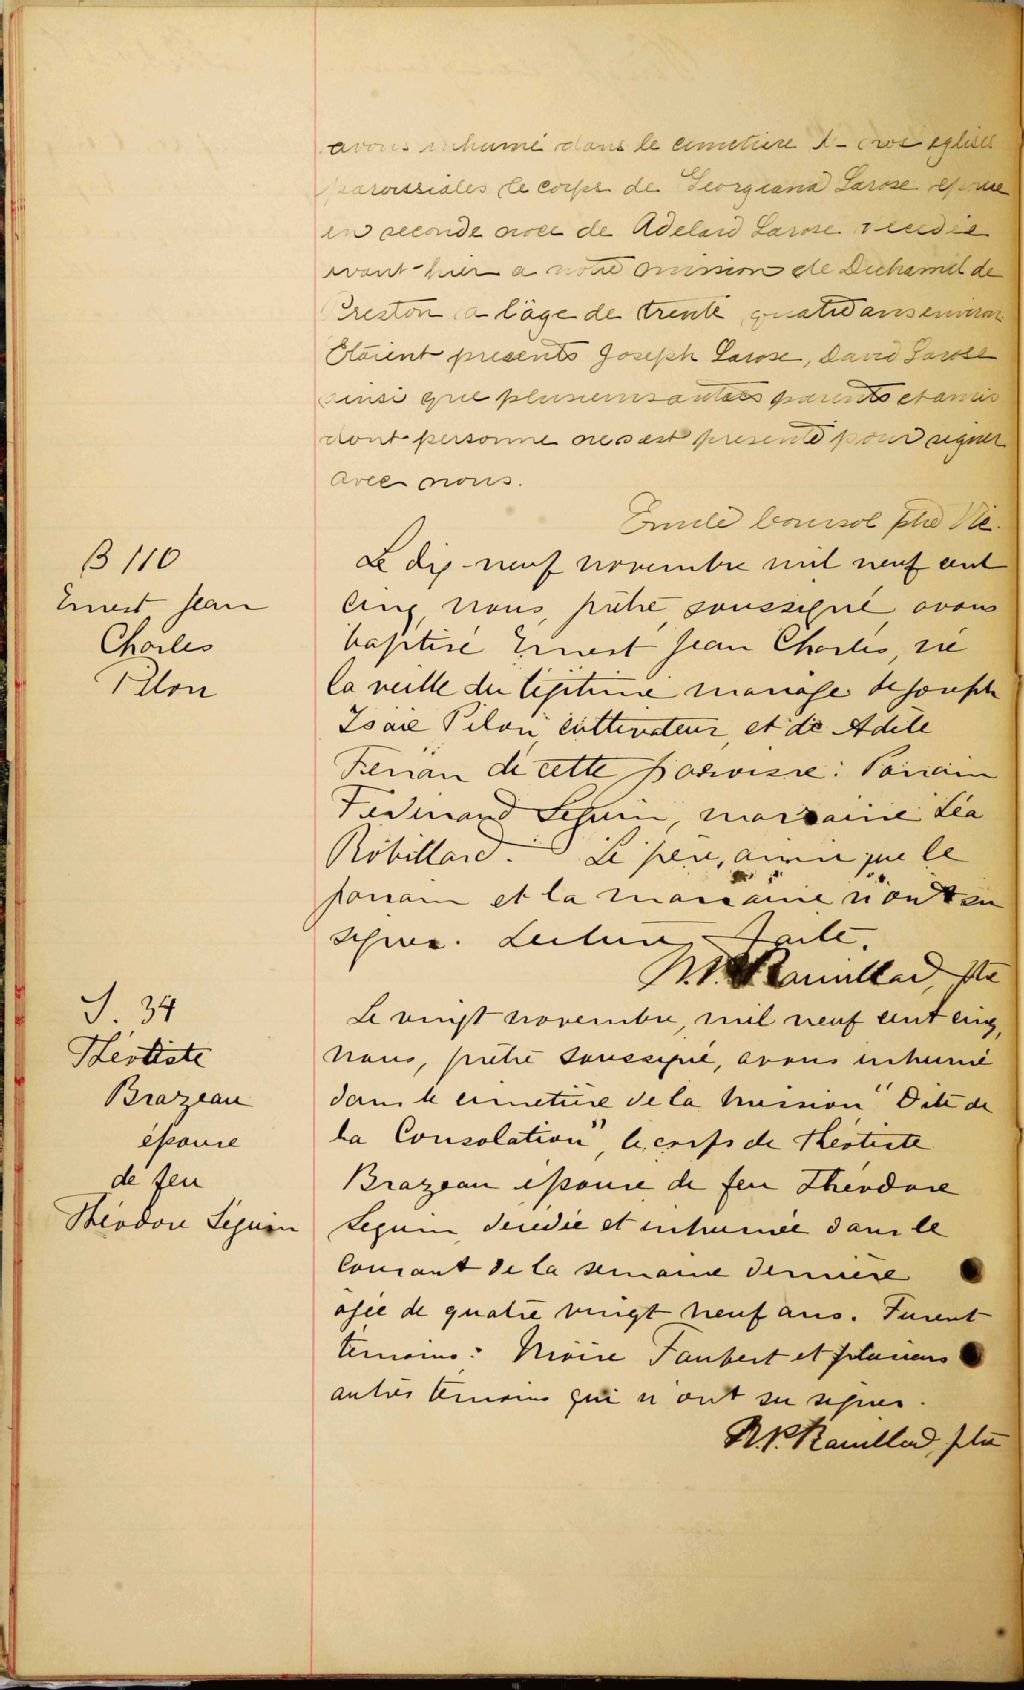 avons inhumé dans le cimetière de nos eglises
paroissiales le corps de Georgiana Larose epouse
en seconde noce de Adelard Larose
avant-hier a notre mission de Duhamel de
Preston a l'âge de trente quatre ans environ
Etaient presents Joseph Larose, David Larose
ainsi que plusieurs autres parents et amis
dont personne ne s'est presenté pour signer
avec nous.
Emile ptre Vic.
B 110
Ernest Jean
Charles
Pilon
Le dix-neuf novembre mil neuf cent
cinq, nous, prêtre soussigné, avons
baptisé Ernest Jean Charles, né
la veille du légitime mariage de Joseph
Isaïe Pilon, cultivateur, et de Adèle
de cette paroisse: Parrain
Ferdinand Seguin, marraine Léa
Robillard. Le père, ainsi que le
parrain et la marraine n'ont su
signer. Lecture faite.
ptre
S. 34
Théotiste
Brazeau
épouse
de feu
Théodore Séguin
Le vingt novembre, mil neuf cent cinq,
nous, prêtre soussigné, avons inhumé
dans le cimetière de la mission "Dite de
la Consolation", le corps de Théotiste
Brazeau épouse de feu Théodore
Seguin, décédée et inhumée dans le
courant de la semaine dernière
âgée de quatre vingt neuf ans. Furent
témoins: Moïse Faubert et plusieurs
autres témoins qui n'ont su signer.
ptre